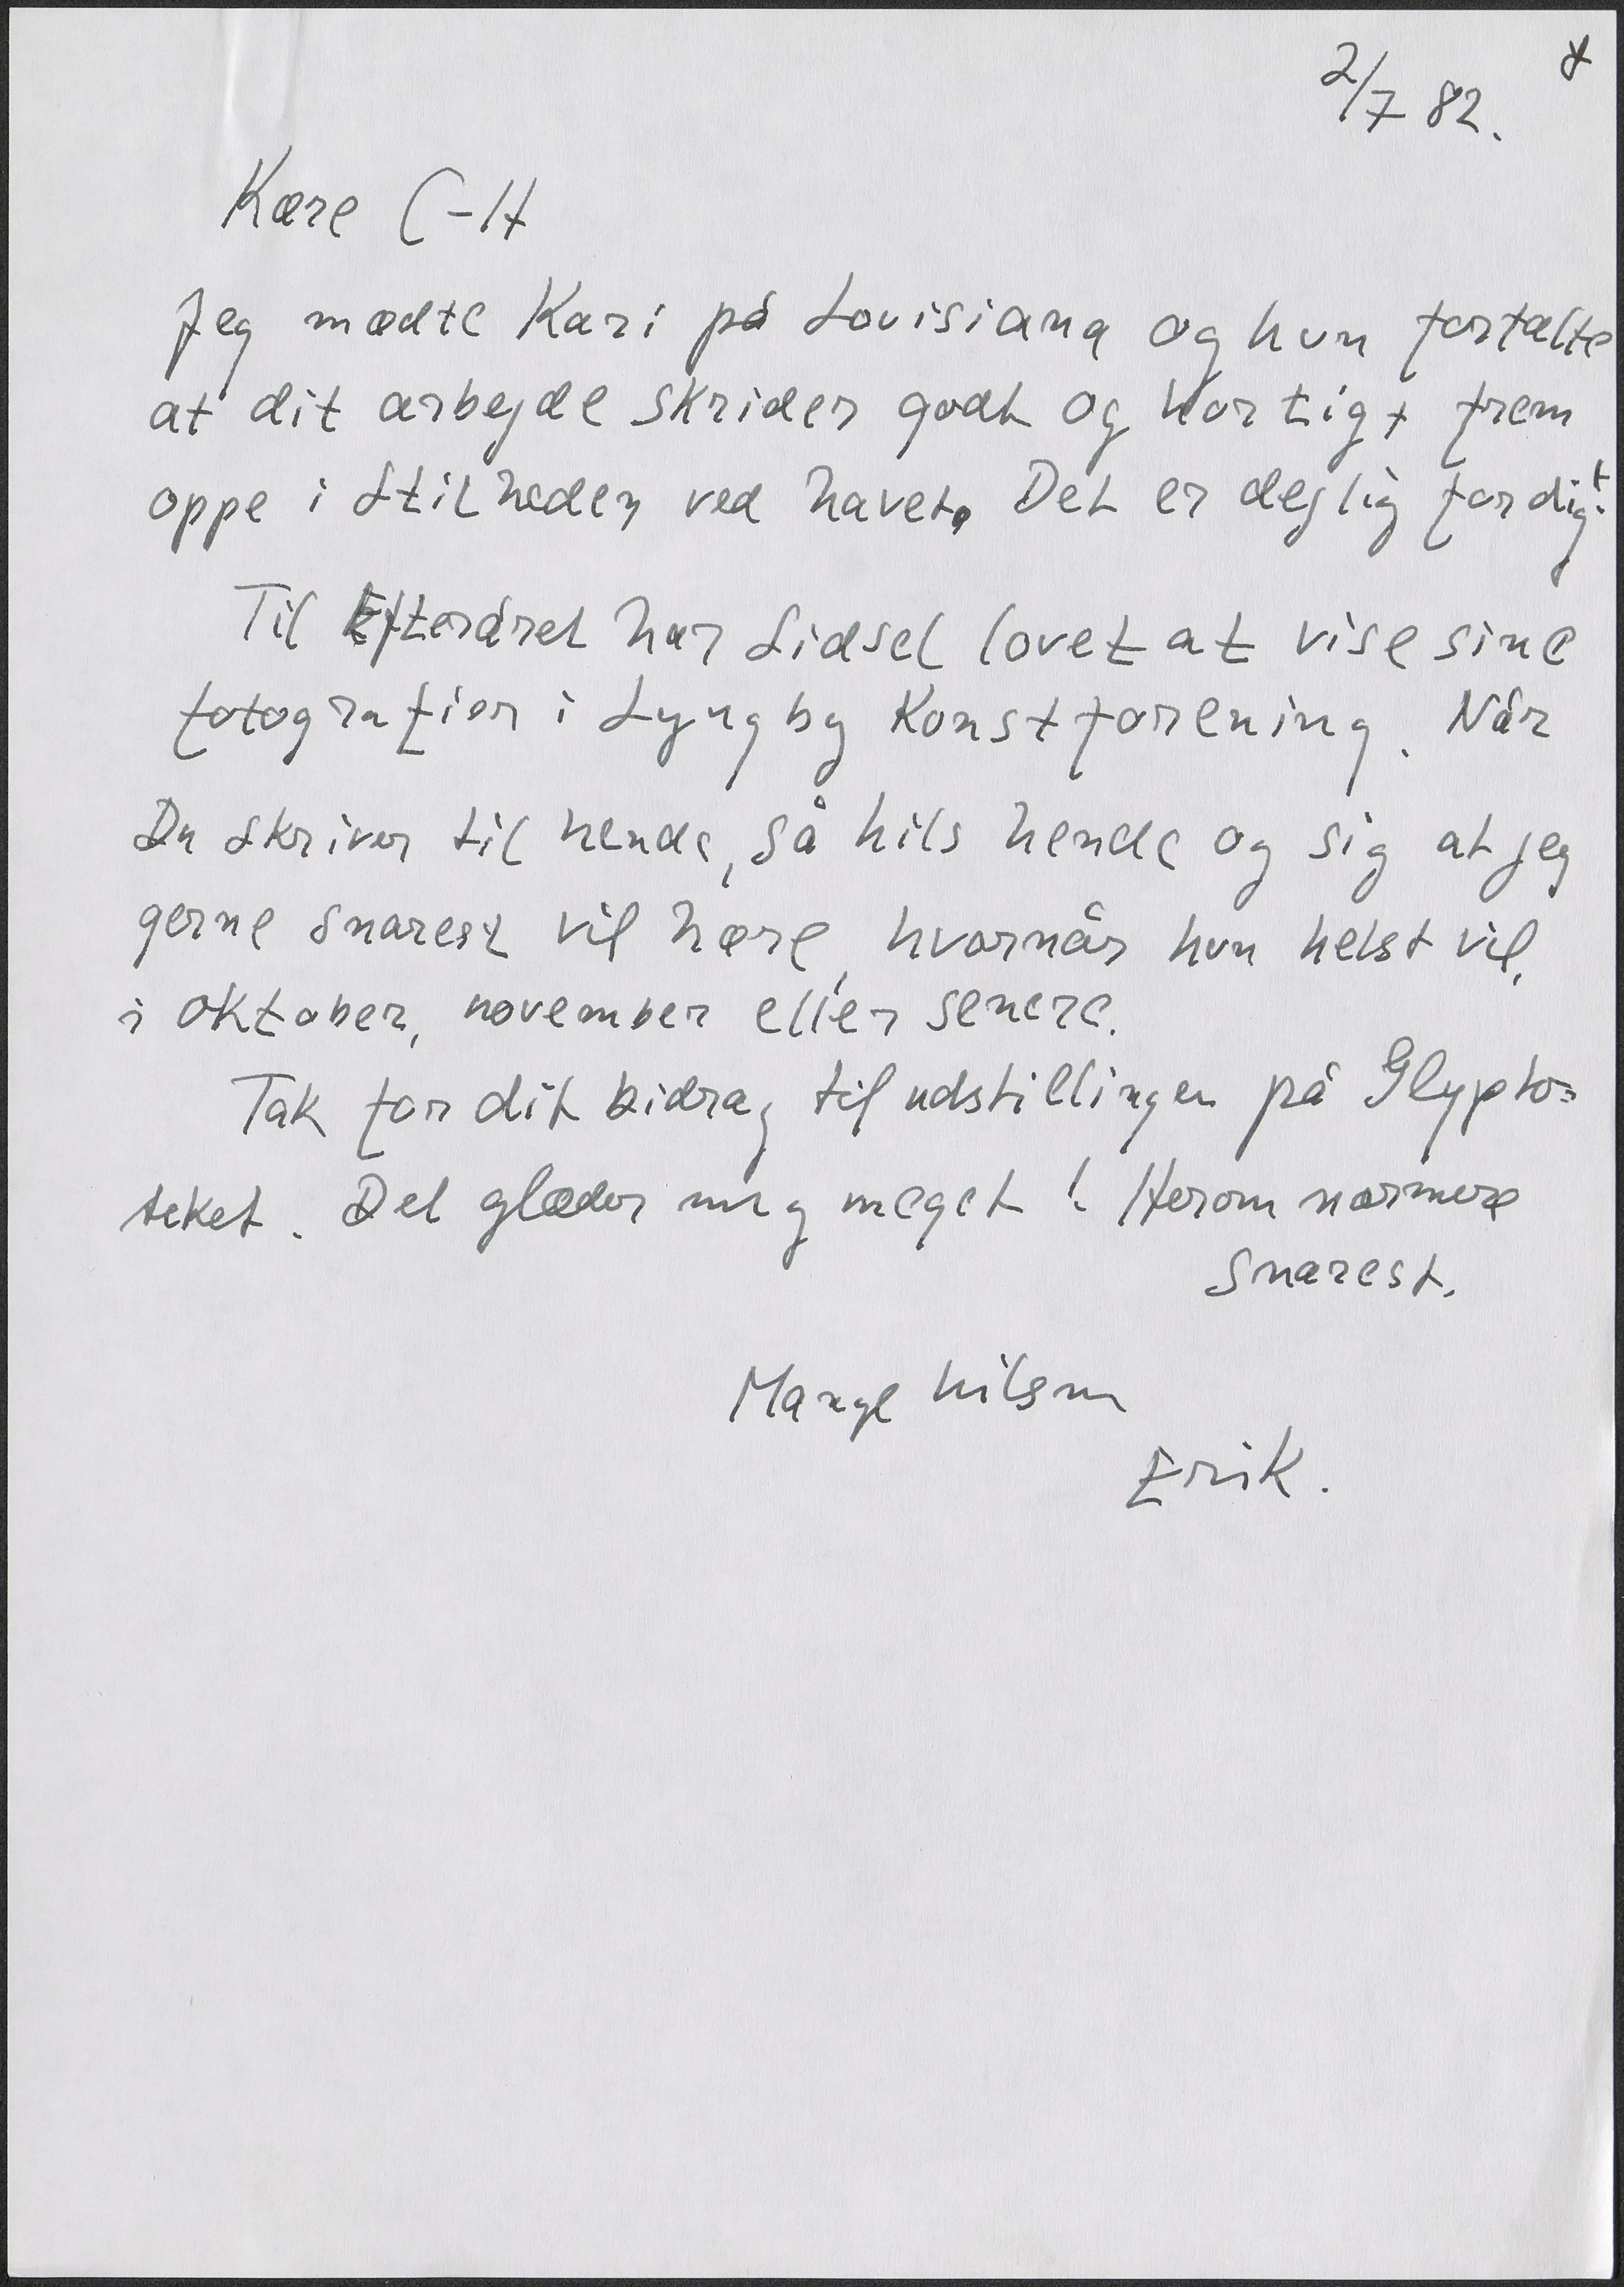 2/7 82.
Kære C-H
Jeg mødte Kari på Louisiana og hun fortalte
at dit arbejde skrider godt og hurtigt frem
oppe i stilheden ved havet. Det er dejlig for dig!
Til Efteråret har Sidsel lovet at vise sine
fotografier i Lyngby Kunstforening. Når
Du skriver til hende, så hils hende og sig at jeg
gerne snarest vil høre, hvornår hun helst vil,
i oktober, november eller senere.
Tak for dit bidrag til udstillingen på Glypto=
teket. Det glæder mig meget! Herom nærmere
snarest.
Mange hilsner
Erik.